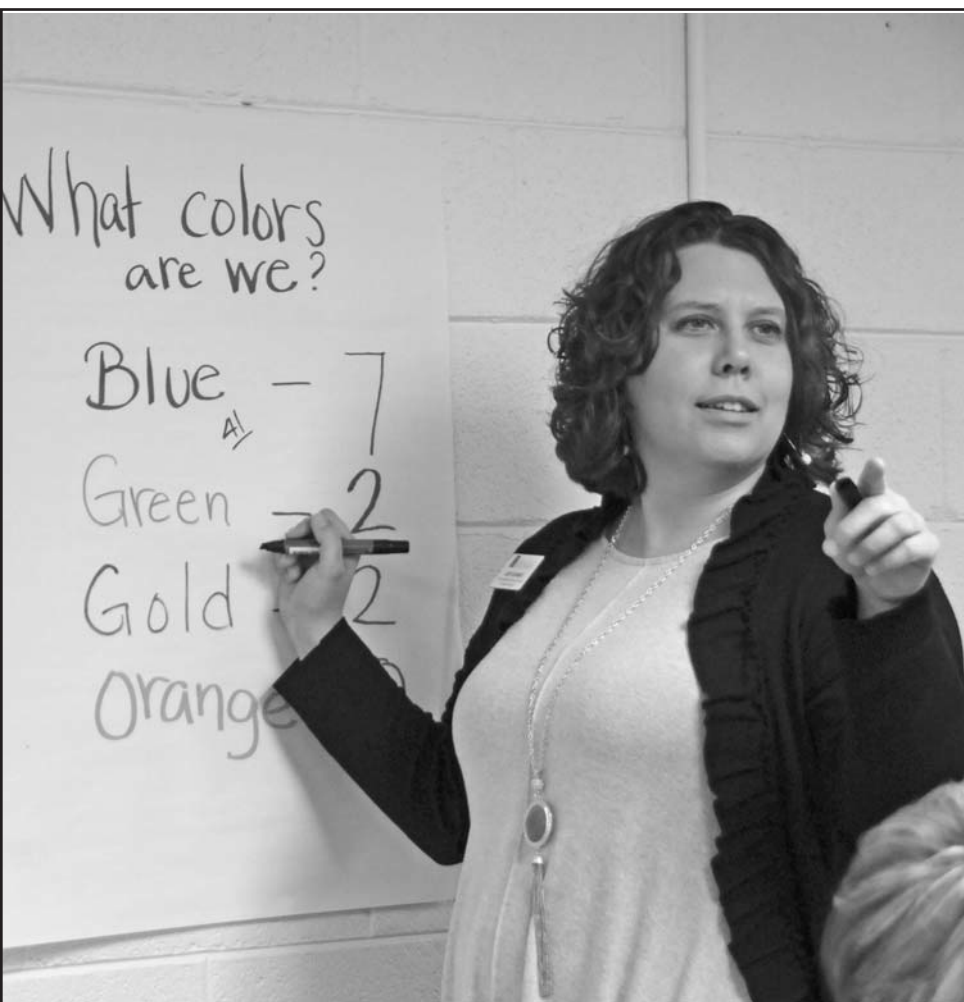 What colors
are we?
Blue - 7
41
Green - 2
Gold - 2
Orange